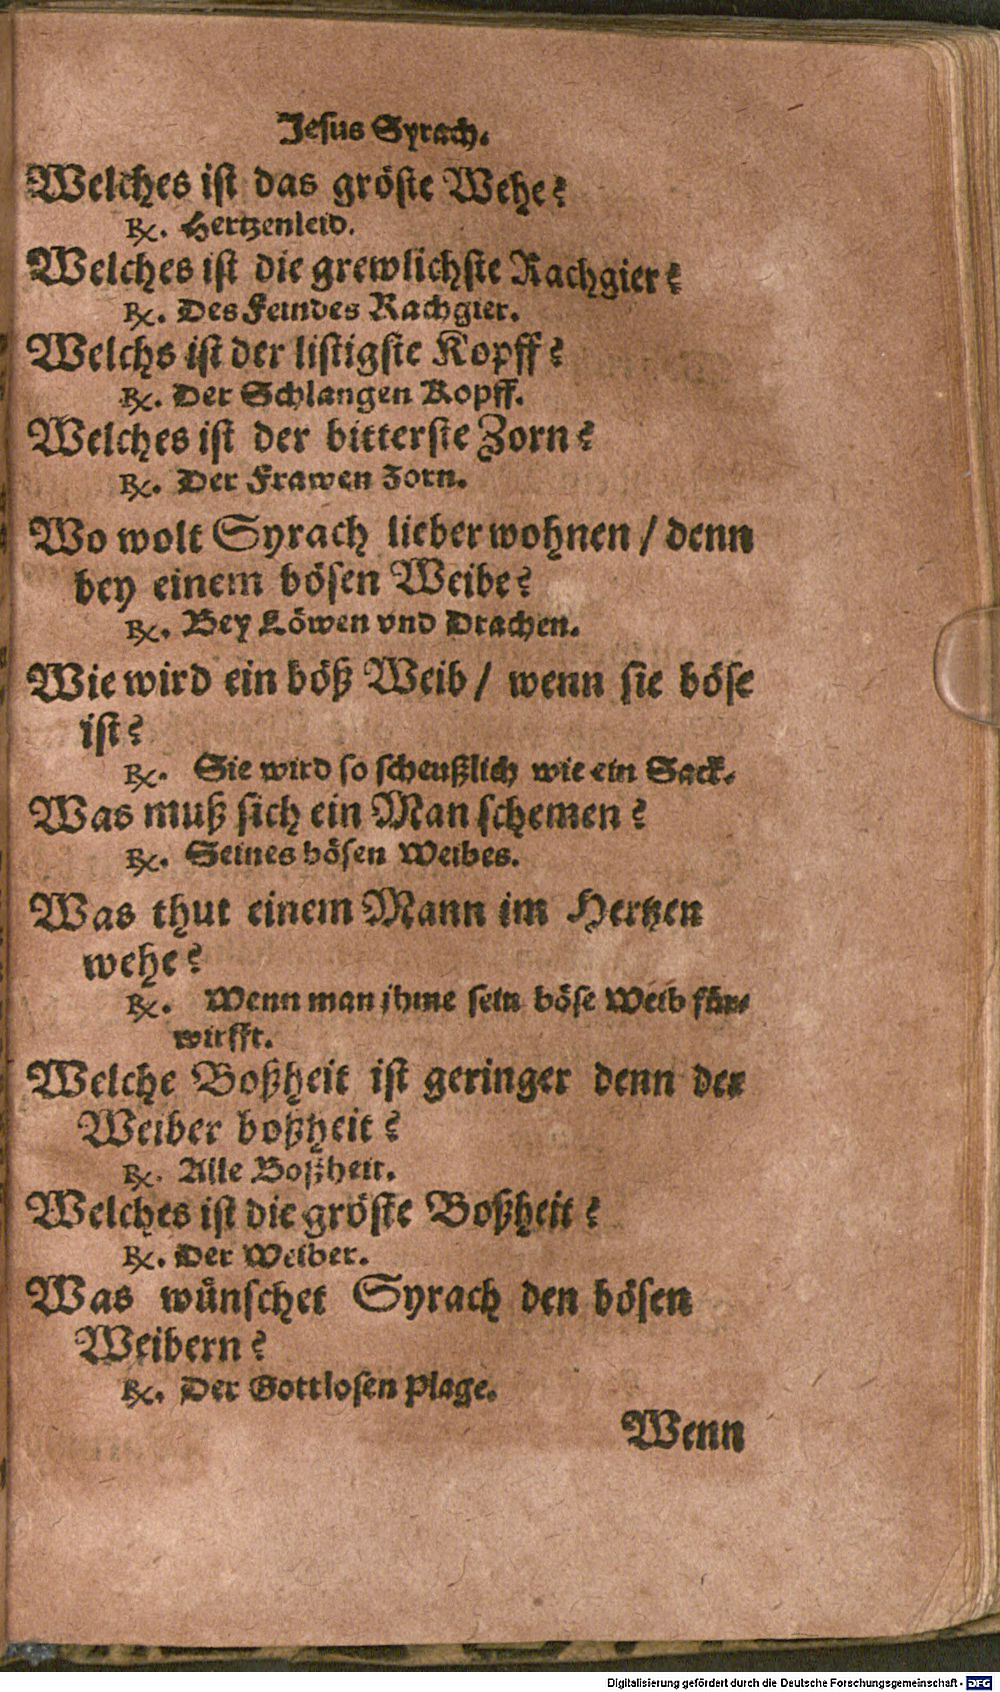 Jesus Syrach.
Welches ist das gröste Wehe?
℞. Hertzenleid.
Welches ist die grewlichste Rachgier?
℞. Des Feindes Rachgier.
Welchs ist der listigste Kopff?
℞. Der Schlangen Kopff.
Welches ist der bitterste Zorn?
℞. Der Frawen Zorn.
Wo wolt Syrach lieber wohnen / denn
bey einem bösen Weibe?
℞. Bey Löwen vnd Drachen.
Wie wird ein böß Weib / wenn sie böse
ist?
℞. Sie wird so scheußlich wie ein Sack.
Was muß sich ein Man schemen?
℞. Seines bösen Weibes.
Was thut einem Mann im Hertzen
wehe?
℞. Wenn man jhme sein böse Weib für-
wirfft.
Welche Boßheit ist geringer denn der
Weiber boßheit?
℞. Alle Boßheit.
Welches ist die gröste Boßheit?
℞. Der Weiber.
Was wünschet Syrach den bösen
Weibern?
℞. Der Gottlosen Plage.
Wenn
Digitalisierung gefördert durch die Deutsche Forschungsgemeinschaft - DFG